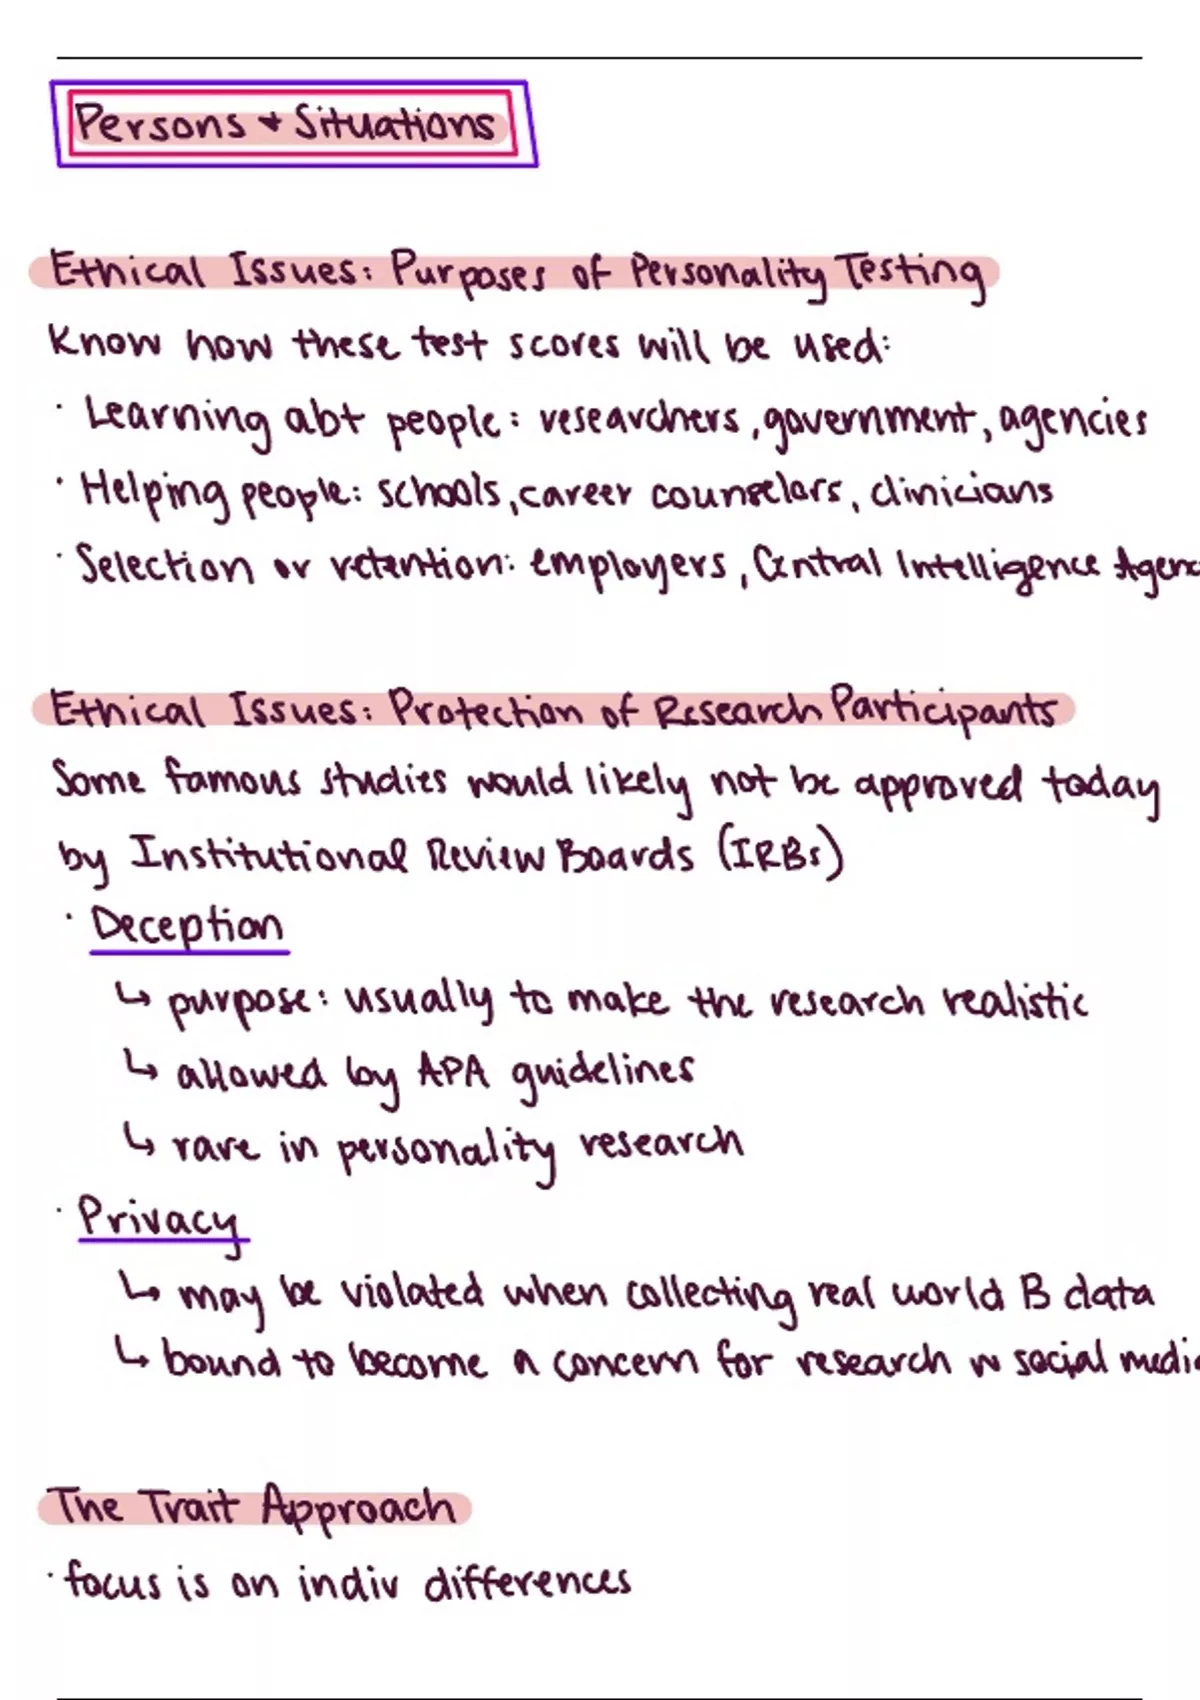 Persons + Situations
Ethical Issues: Purposes of Personality Testing
Know how these test scores will be used:
· Learning abt people: researchers, government, agencies
· Helping people: schools, career counselors, clinicians
· Selection or retention: employers, Central Intelligence Agenc
Ethical Issues: Protection of Research Participants
Some famous studies would likely not be approved today
by Institutional Review Boards (IRBs)
· Deception
↳ purpose: usually to make the research realistic
↳ allowed by APA guidelines
↳ rare in personality research
· Privacy
↳ may be violated when collecting real world B data
↳ bound to become a concern for research w social media
The Trait Approach
· focus is on indiv differences